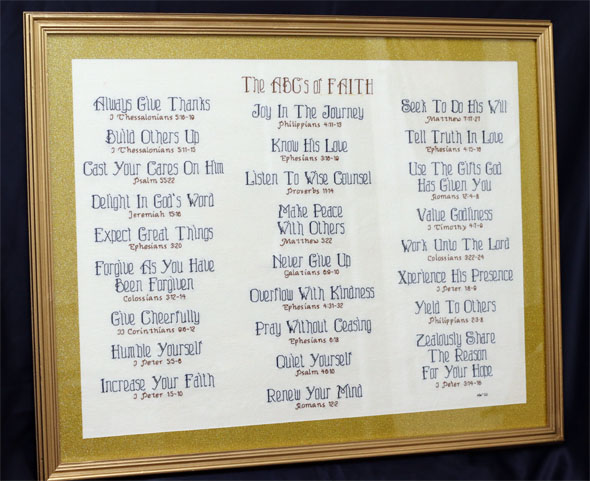 The ABC's of FAITH
Always Give Thanks
I Thessalonians 5:16-19
Build Others Up
I Thessalonians 5:11-15
Cast Your Cares On Him
Psalm 55:22
Delight In God's Word
Jeremiah 15:16
Expect Great Things
Ephesians 3:20
Forgive As You Have
Been Forgiven
Colossians 3:12-14
Give Cheerfully
II Corinthians 9:6-12
Humble Yourself
I Peter 5:5-6
Increase Your Faith
I Peter 1:5-10
Joy In The Journey
Philippians 4:11-13
Know His Love
Ephesians 3:16-19
Listen To Wise Counsel
Proverbs 11:14
Make Peace
With Others
Matthew 3:22
Never Give Up
Galatians 6:9-10
Overflow With Kindness
Ephesians 4:31-32
Pray Without Ceasing
Ephesians 6:18
Quiet Yourself
Psalm 46:10
Renew Your Mind
Romans 12:2
Seek To Do His Will
Matthew 7:17-21
Tell Truth In Love
Ephesians 4:15-16
Use The Gifts God
Has Given You
Romans 12:4-8
Value Godliness
I Timothy 4:7-9
Work Unto The Lord
Colossians 3:22-24
Xperience His Presence
I Peter 1:8-9
Yield To Others
Philippians 2:3-8
Zealously Share
The Reason
For Your Hope
I Peter 3:14-16